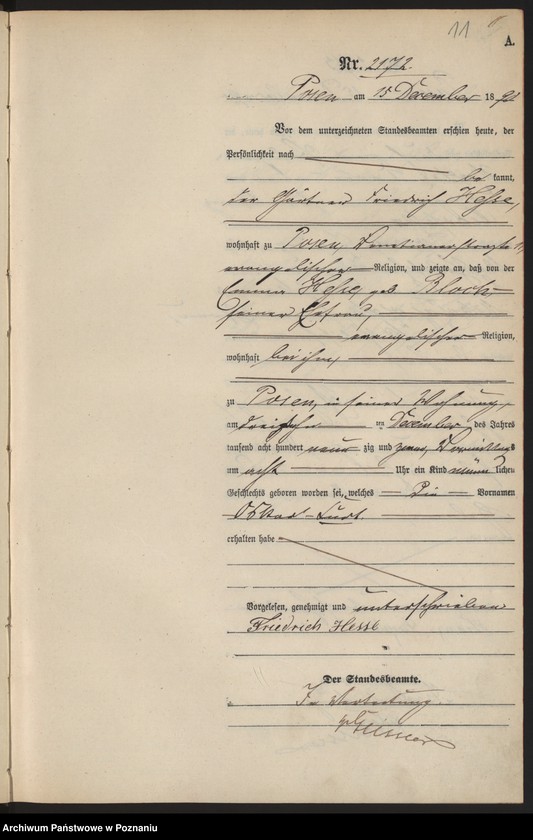 11
A.
Nr. 2172.
Posen am 15 December 18 92
Vor dem unterzeichneten Standesbeamten erschien heute, der
Persönlichkeit nach
be kannt,
der Gärtner Friedrich Hesse,
wohnhaft zu Posen,
evangelischer Religion, und zeigte an, daß von der
Emma Hesse, geb. Bloch
seiner Ehefrau,
evangelischer Religion,
wohnhaft bei ihm,
zu Posen, in seiner Wohnung,
am dreizehn ten December des Jahres
tausend acht hundert neun zig und zwei, Vormittags
um acht Uhr ein Kind männ lichen
Geschlechts geboren worden sei, welches Die Vornamen
Oskar-Kurt
erhalten habe
Vorgelesen, genehmigt und unterschrieben
Friedrich Hesse
Der Standesbeamte.
In Vertretung.
Archiwum Państwowe w Poznaniu